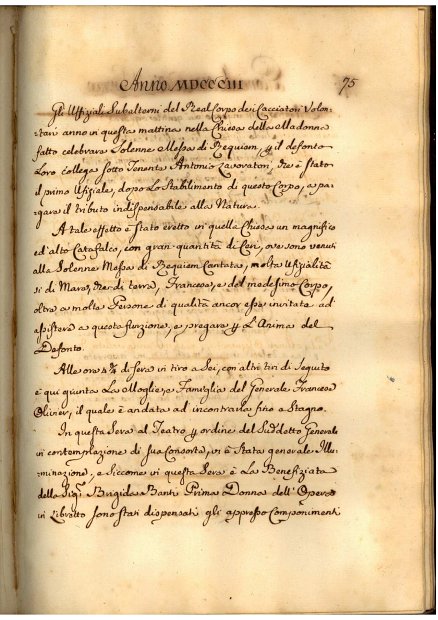 Anno MDCCCIII
75
Gli Uffiziali Subalterni del Real Corpo dei Cacciatori Volon-
tari anno in questa mattina nella Chiesa della Madonna
fatto celebrare Solenne Messa di Requiem, p il defonto
Loro collega Sotto Tenente Antonio che è stato
il primo Ufiziale, dopo Lo Stabilimento di questo Corpo, a pa-
gare il tributo indispensabile alla Natura.
A tale effetto è stato eretto in quella Chiesa un magnifico
ed' alto Catafalco, con gran quantità di Ceri, ove sono venuti
alla Solenne Messa di Requiem Cantata, molta Ufizialità
si di Mare, che di terra, Francese, e del medesimo Corpo,
oltre a molte Persone di qualità ancor esse invitate ad
assistere a questa funzione, e pregare p L'Anima del
Defonto.
Alle ore 4¾ di Sera in tiro a Sei, con altri tiri di Seguito
è qui giunta La Moglie, e Famiglia del Generale Francese
Olivier, il quale è andato ad incontrarla fino a Stagno.
In questa Sera al Teatro p ordine del Suddotto Generale
in contemplazione di sua Consorte, vi è Stata generale Illu-
minazione; e Siccome in questa Sera è La Benefiziata
della Sigra Brigida Banti Prima Donna dell'Opera
in Libretto sono stati dispensati gli appresso Componimenti